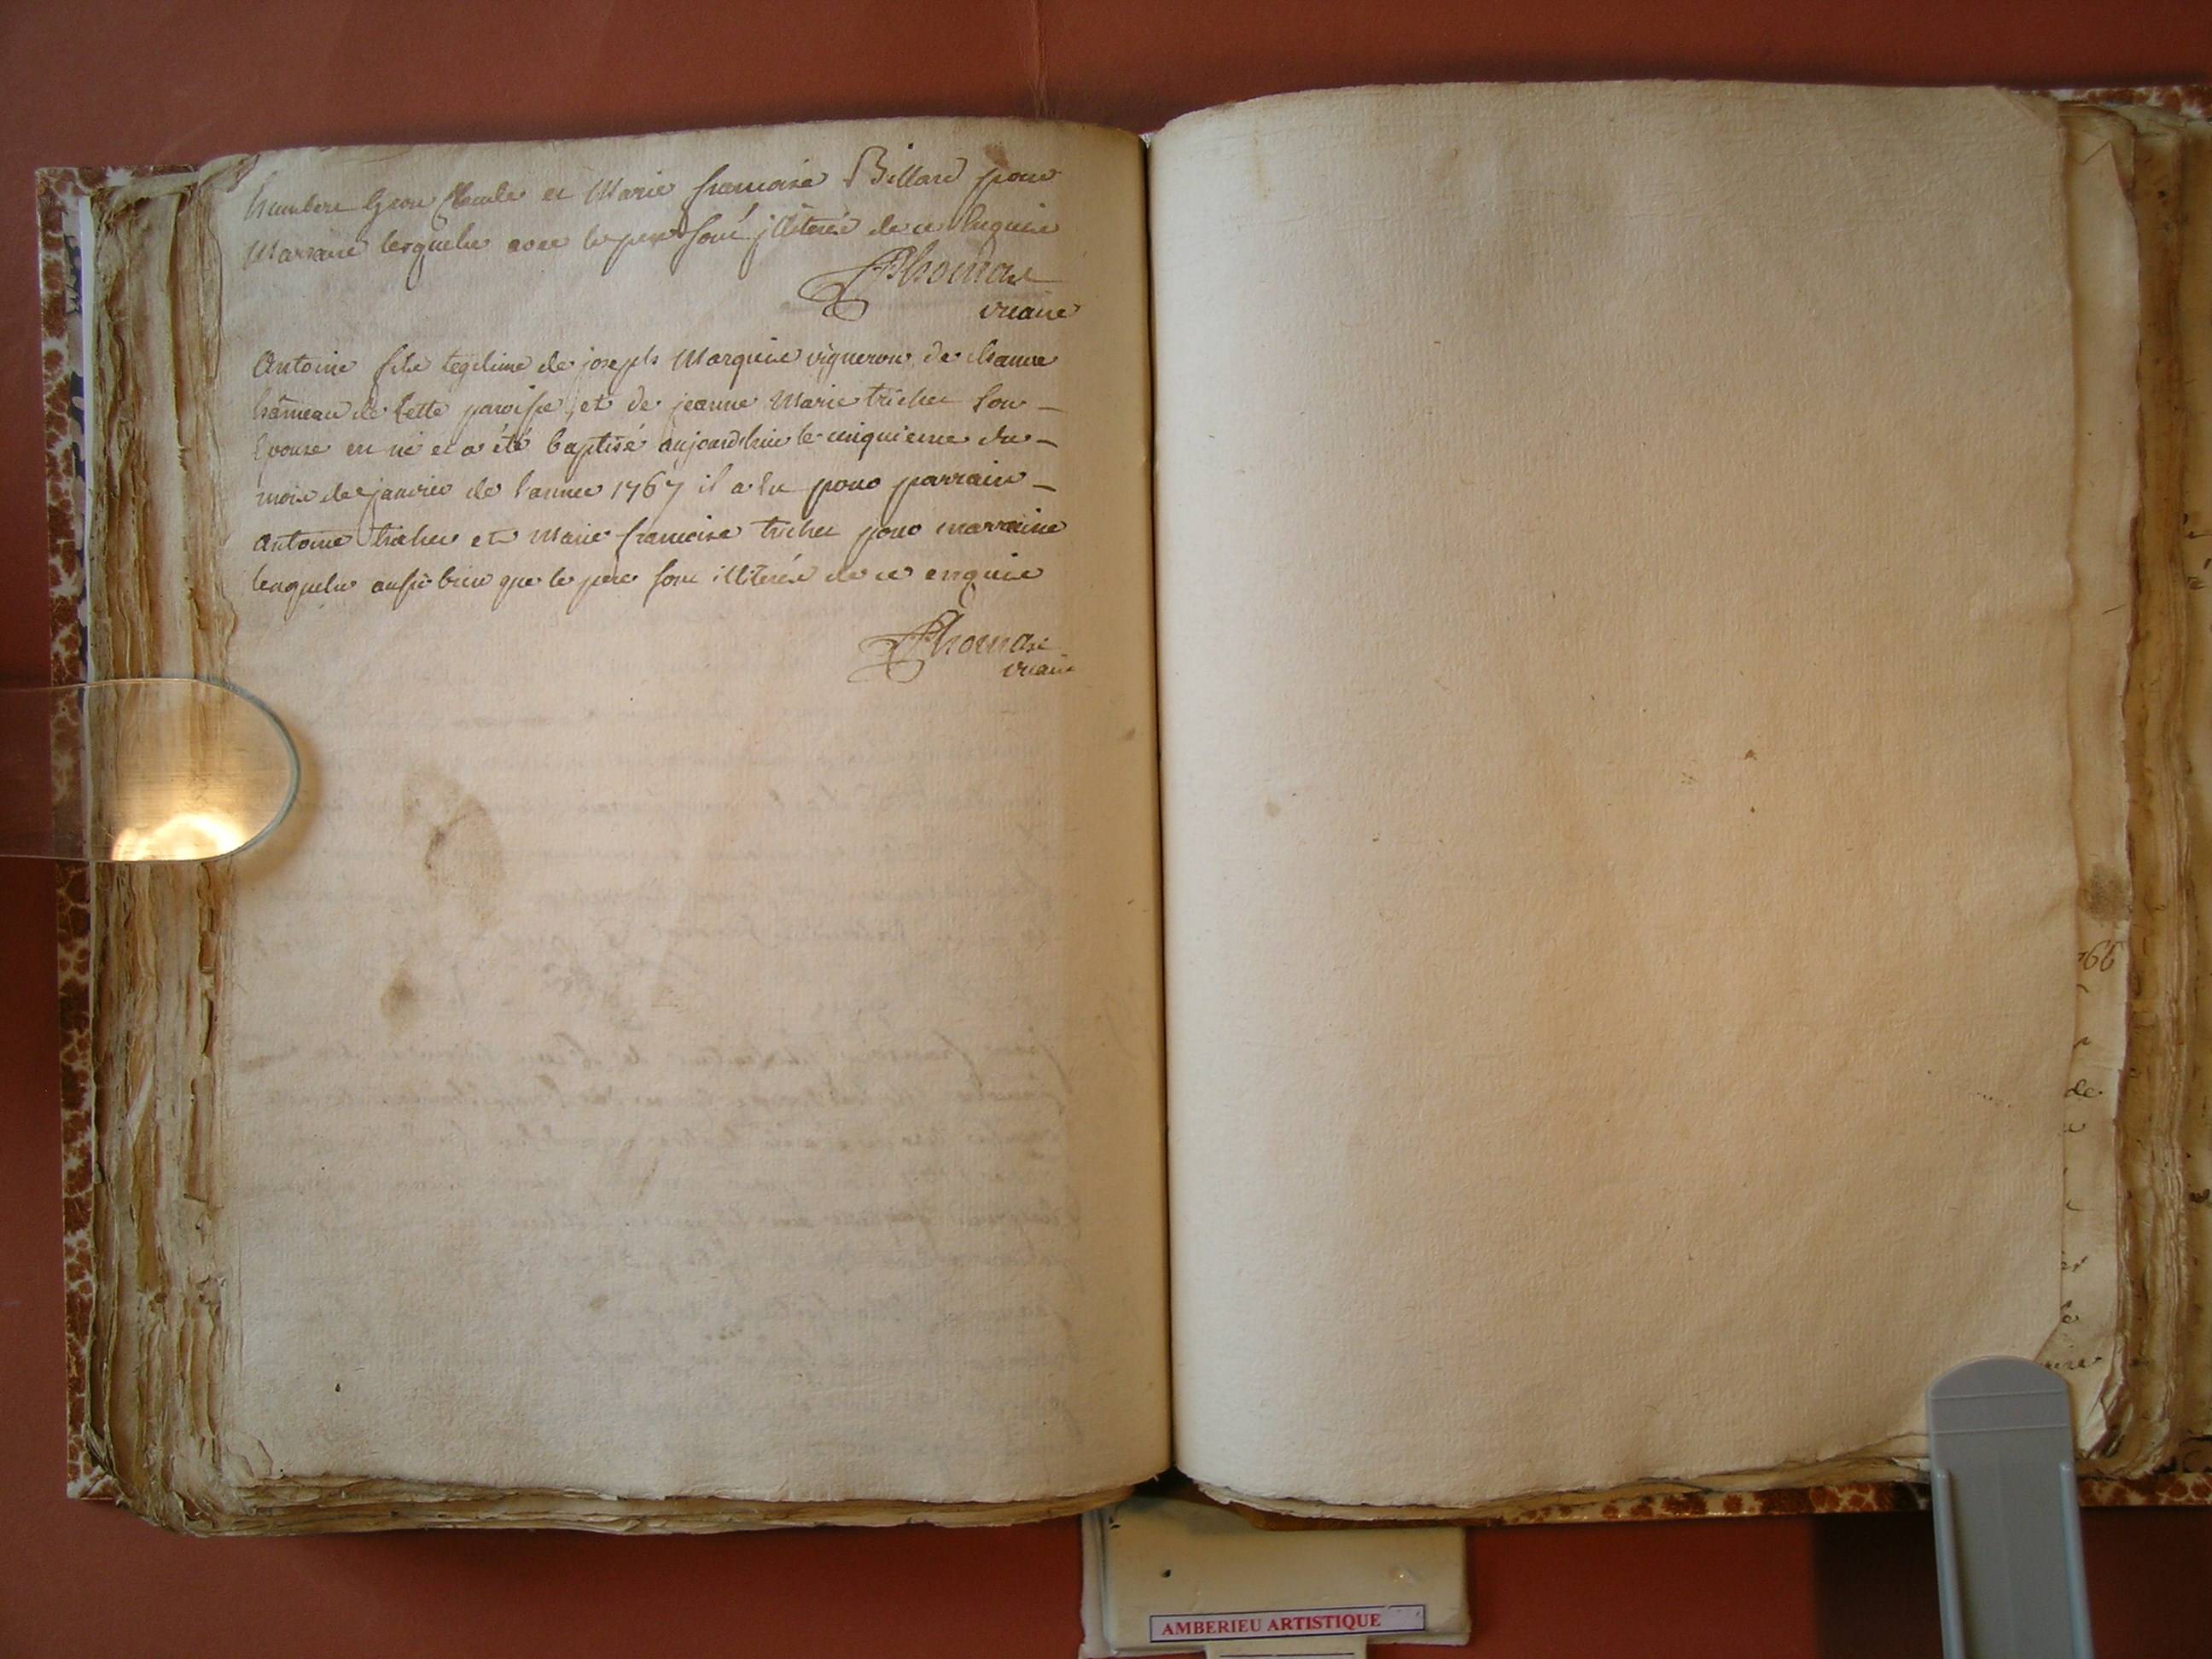 et Marie francoise Billard pour
Maraine lesquels avec le pere sont illiterés de ce Enquis
Thomas
vicaire
Antoine fils legitime de joseph Marquis vigneron de
hameau de Cette paroisse et de jeanne Marie trichet son
Epouse est né et a été baptisé aujourdhui le cinquieme du
mois de janvier de l'annee 1767 il a eu pour parrain
Antoine trichet et Marie francoise trichet pour marraine
lesquels aussi bien que le pere sont illiterés de ce enquis
Thomas
vicaire
766
de
AMBERIEU ARTISTIQUE